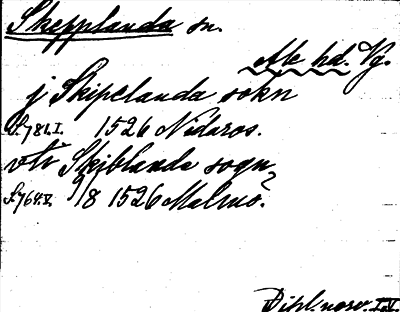 Skepplanda sn.
Ale hd. Vg.
j Skipelanda sokn
S. 781. I. 1526 Nidaros.
vti Skiblande sogn
S. 768. V. 9/8 1526 Malmö.
Dipl. norv. I. V.